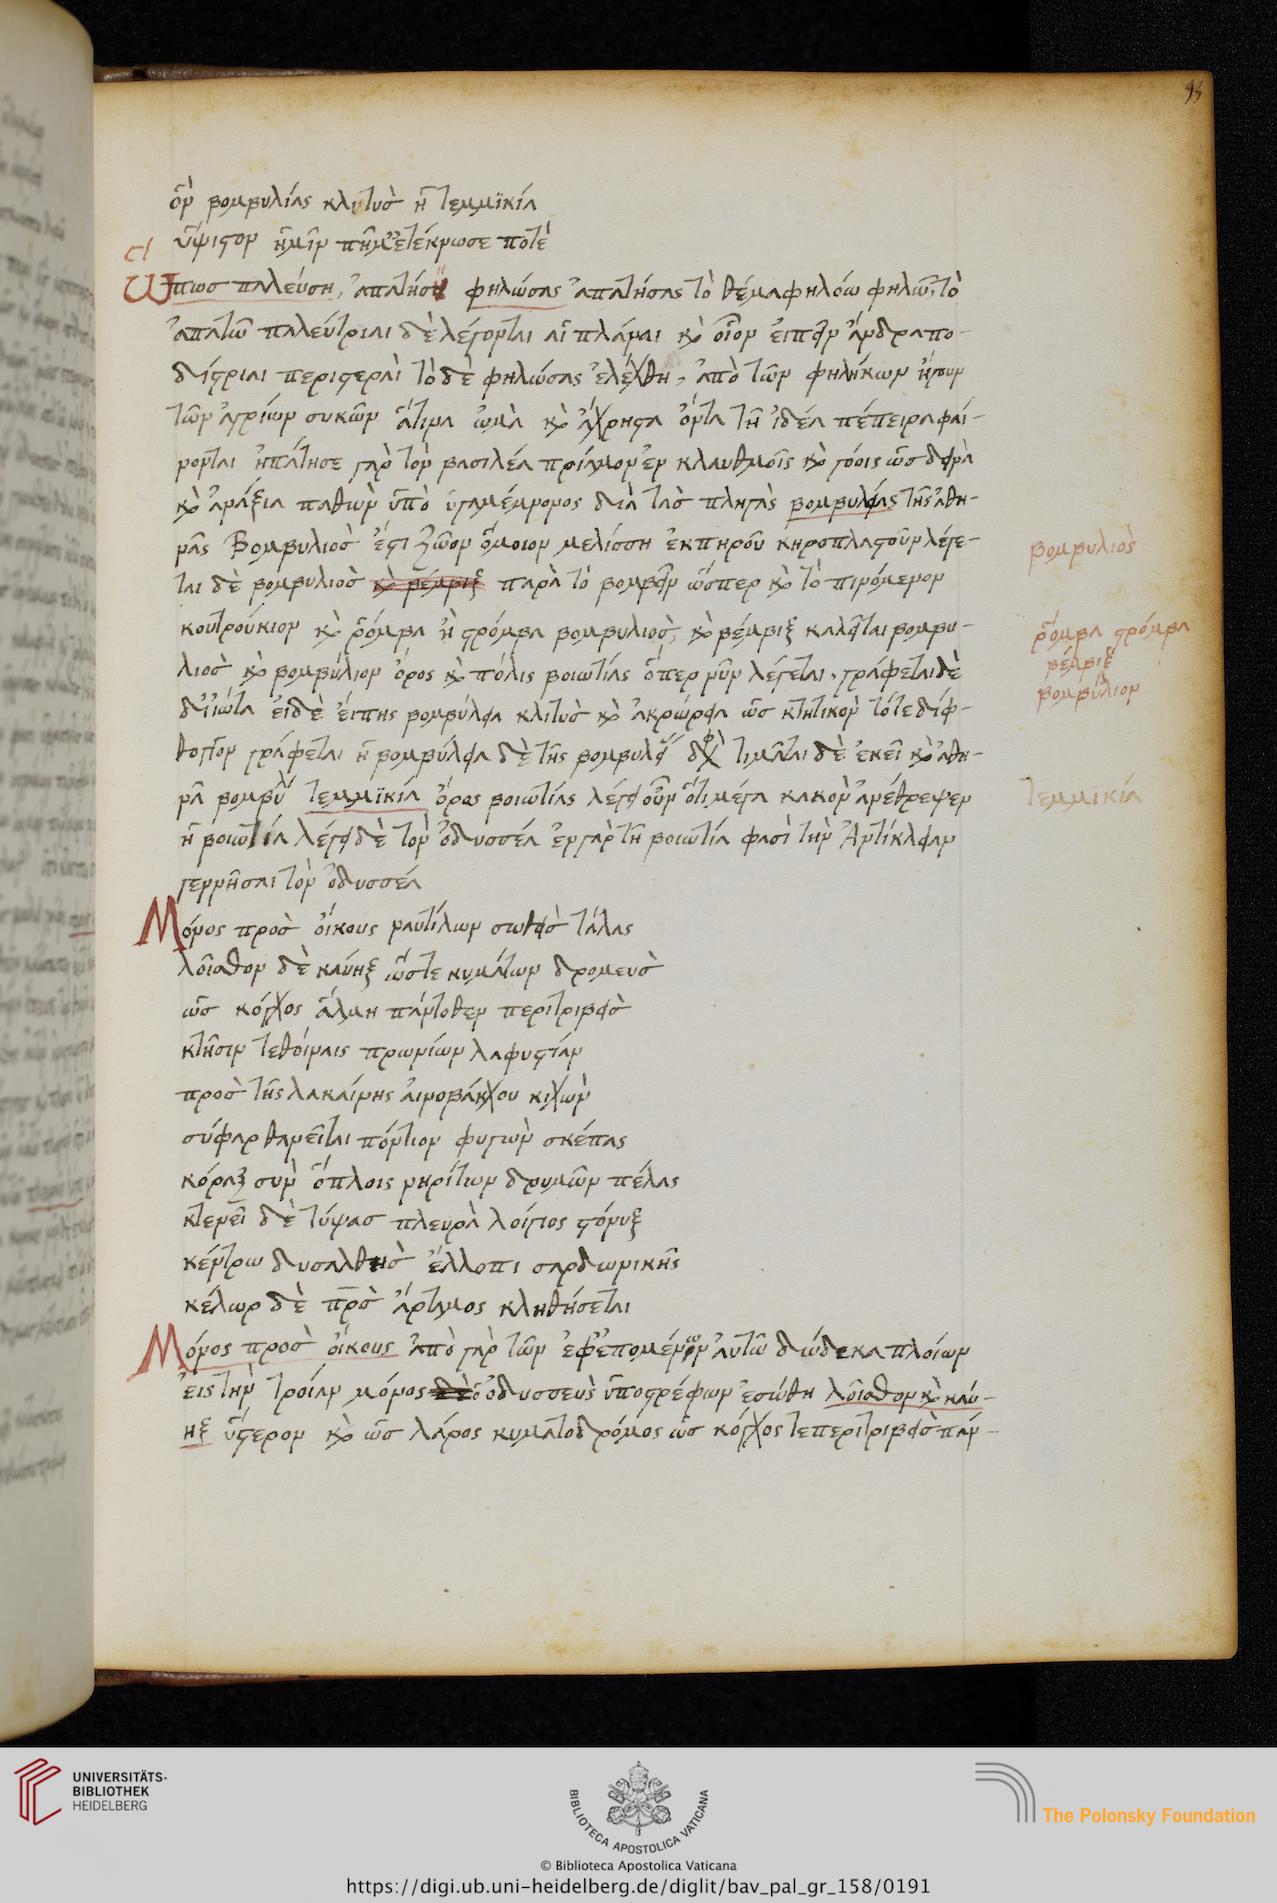 93
ὃν βομβυλίας κλιτυσ ἡ τεμμϊκία
ὕψιστον ἡμῖν πῆμ᾽ ἐτέκνωσε ποτὲ
Ὅπωσ παλεύση, ἀπατήση φηλώσας ἀπατήσας τὸ θέμα φηλόω φηλῶ, τὸ
ἀπατῶ παλεύτριαι δὲ λέγονται αἱ πλάναι κὸ οἷον εἰπεῖν ἀνδραπο-
δίστριαι περιστεραὶ τὸ δὲ φηλώσας ἐλέχθη, ἀπὸ τῶν φηλήκων ἤγουν
τῶν ἀγρίων συκῶν ἅτινα ὠμὰ κὸ ἄχρηστα ὄντα τῆ ἰδέα πέπειρα φαί-
νονται ἠπάτησε γὰρ τὸν βασιλέα πρίαμον ἐν κλαυθμοῖς κὸ γόοις ὡσ δεινὰ
κὸ ἀνάξια παθὼν ὑπὸ ἀγαμέμνονος διὰ τὰσ πληγὰς βομβυλείας τῆς ἀθη-
νᾶς Βομβυλιοσ ἐστὶ ζῶον ὅμοιον μελίσση ἐκ πηλοῦ κηροπλαστοῦν λέγε-
ται δὲ βομβυλιοσ κὸ βέμβιξ παρὰ τὸ βομβεῖν ὥσπερ κὸ τὸ πινόμενον
κουτρούκιον κὸ ῥόμβα ἢ στρόμβα βομβυλιοσ, κὸ βέμβιξ καλεῖται βομβυ-
λιοσ κὸ βομβύλιον ὄρος κὸ πόλις βοιωτίας ὅπερ νῦν λέγεται, γράφεται δὲ
δι᾽ ἰῶτα εἰ δὲ εἴπης βομβύλεια κλιτυσ κὸ ἀκρώρεια ὡσ κτητικὸν τότε δίφ-
θογγον γράφεται ἡ βομβύλεια δὲ τῆς βομβυλεί δφχ τιμᾶται δὲ ἐκεῖ κὸ ἀθη-
νᾶ βομβυλ τεμμϊκια ὄρος βοιωτίας λέγει οὖν ὅτι μέγα κακὸν ἀνέθρεψεν
ἡ βοιωτία λέγει δὲ τὸν ὀδυσσέα ἐν γὰρ τῆ βοιωτία φασὶ τὴν Ἀντίκλειαν
γεννῆσαι τὸν ὀδυσσέα
Μόνος προσ οἴκους ναυτίλων σωθεὶσ τάλας
λοῖσθον δὲ καύηξ ὥστε κυμάτων δρομευσ
ὡσ κόγχος ἅλμη πάντοθεν περιτριβεὶσ
κτῆσιν τε θοίναις πρωνίων λαφυστίαν
προσ τῆς λακαίνης αἰνοβάκχου κιχὼν
σύφαρ θανεῖται πόντιον φυγὼν σκέπας
κόραξ σὺν ὅπλοις νηρίτων δρυμῶν πέλας
κτενεῖ δὲ τύψασ πλευρὰ λοίγιος στόνυξ
κέντρω δυσαλθησ ἔλλοπι σαρδωνικῆς
κέλωρ δὲ πρσ ἄρταμος κληθήσεται
Μόνος προσ οἴκους ἀπὸ γὰρ τῶν ἐφεπομένων αὐτῶ δώδεκα πλοίων
εἰς τὴν τροίαν μόνος δὲ ὁ ὀδυσσευσ ὑποστρέφων ἐσώθη λοῖσθον κὸ καύ-
ηξ ὕστερον κὸ ὡσ λάρος κυματοδρόμος ὡσ κόγχος τε περιτριβεὶσ παν-
βομβυλιοσ
ῥόμβα στρόμβα
βέμβιξ
βομβύλιον
τεμμϊκία
UNIVERSITÄTS-
BIBLIOTHEK
HEIDELBERG
BIBLIOTECA APOSTOLICA VATICANA
The Polonsky Foundation
© Biblioteca Apostolica Vaticana
https://digi.ub.uni-heidelberg.de/diglit/bav_pal_gr_158/0191